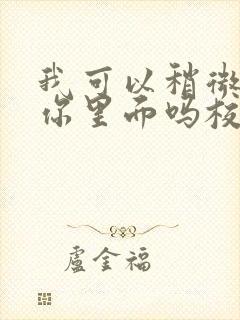 我可以稍微
你里面吗校
盧金福